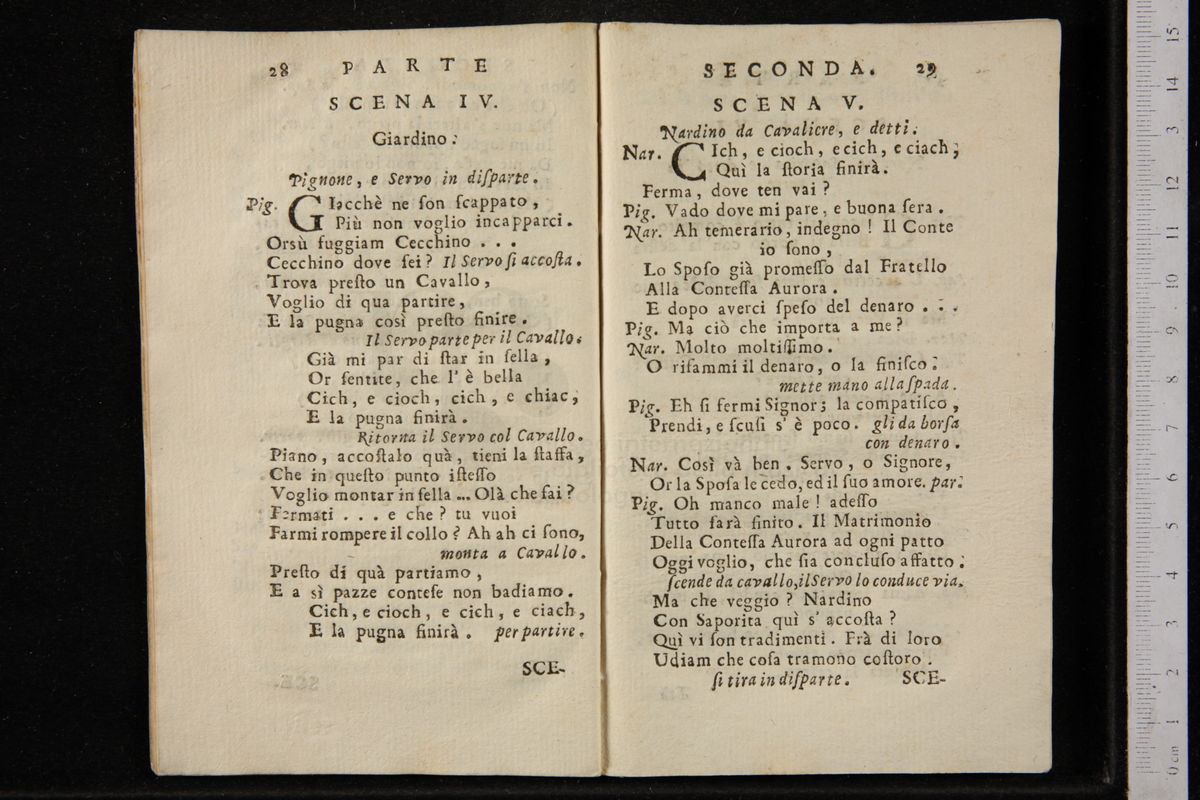 28 PARTE
SCENA IV.
Giardino.
Pignone, e Servo in diſparte.
Pig. GIacchè ne ſon ſcappato,
Più non voglio incapparci.
Orsù fuggiam Cecchino . . .
Cecchino dove ſei? Il Servo ſi accoſta.
Trova preſto un Cavallo,
Voglio di qua partire,
E la pugna così preſto finire.
Il Servo parte per il Cavallo.
Già mi par di ſtar in ſella,
Or ſentite, che l' è bella
Cich, e cioch, cich, e chiac,
E la pugna finirà.
Ritorna il Servo col Cavallo.
Piano, accoſtalo quà, tieni la ſtaffa,
Che in queſto punto iſteſſo
Voglio montar in ſella ... Olà che fai?
Fermati . . . e che? tu vuoi
Farmi rompere il collo? Ah ah ci ſono,
monta a Cavallo.
Preſto di quà partiamo,
E a sì pazze conteſe non badiamo.
Cich, e cioch, e cich, e ciach,
E la pugna finirà. per partire.
SCE-
SECONDA. 29
SCENA V.
Nardino da Cavaliere, e detti.
Nar. CIch, e cioch, e cich, e ciach;
Quì la ſtoria finirà.
Ferma, dove ten vai?
Pig. Vado dove mi pare, e buona ſera.
Nar. Ah temerario, indegno! Il Conte
io ſono,
Lo Spoſo già promeſſo dal Fratello
Alla Conteſſa Aurora.
E dopo averci ſpeſo del denaro . . .
Pig. Ma ciò che importa a me?
Nar. Molto moltiſſimo.
O rifammi il denaro, o la finiſco.
mette mano alla ſpada.
Pig. Eh ſi fermi Signor; la compatiſco,
Prendi, e ſcuſi s' è poco. gli da borſa
con denaro.
Nar. Così và ben. Servo, o Signore,
Or la Spoſa le cedo, ed il ſuo amore. par.
Pig. Oh manco male! adeſſo
Tutto ſarà finito. Il Matrimonio
Della Conteſſa Aurora ad ogni patto
Oggi voglio, che ſia concluſo affatto.
ſcende da cavallo, il Servo lo conduce via.
Ma che veggio? Nardino
Con Saporita quì s' accoſta?
Quì vi ſon tradimenti. Frà di loro
Udiam che coſa tramono coſtoro.
ſi tira in diſparte. SCE-
0 cm 1 2 3 4 5 6 7 8 9 10 11 12 13 14 15